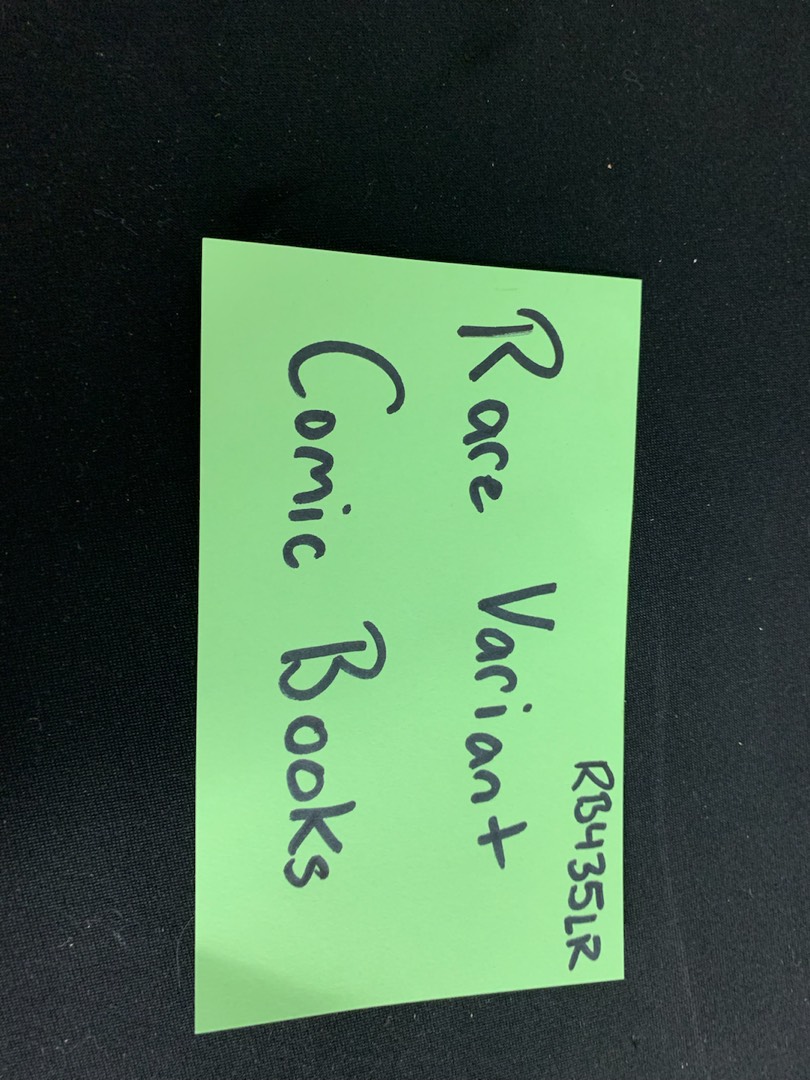 RB435LR
Rare Variant
Comic Books